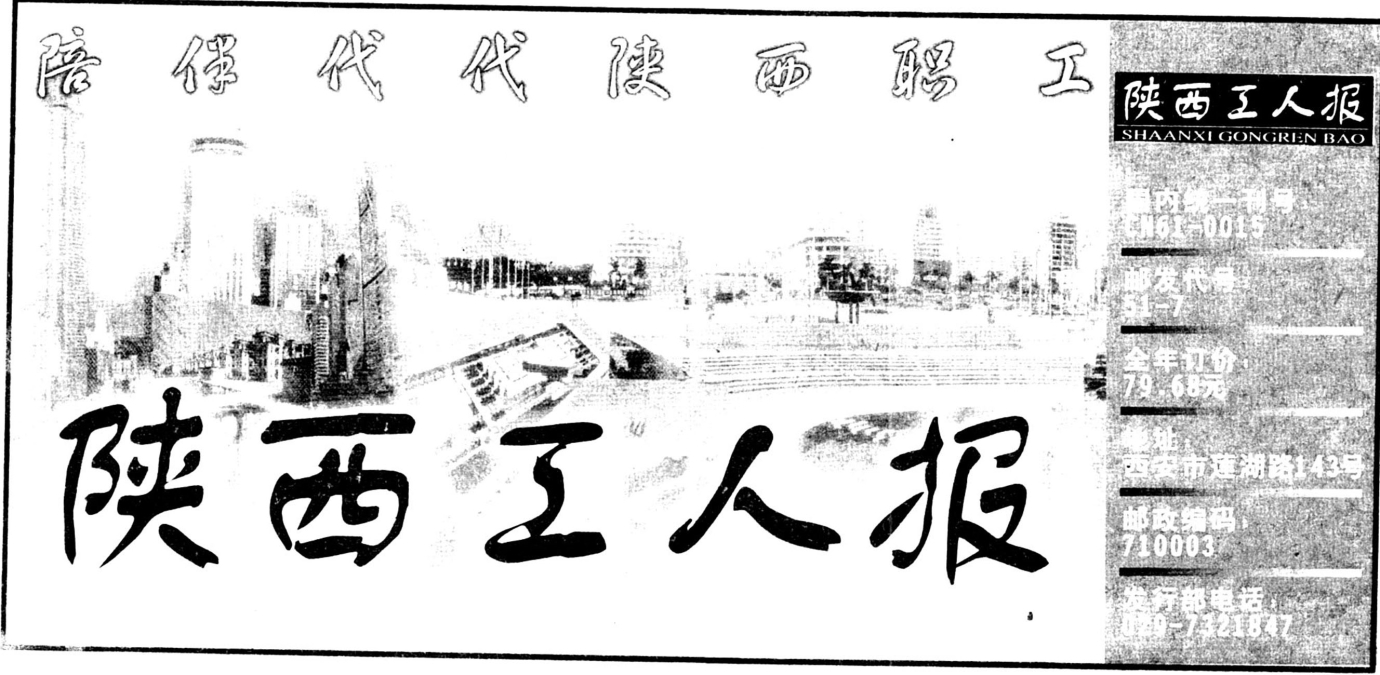 陪伴代代陕西职工
陕西工人报
陕西工人报
SHAANXI GONGREN BAO
国内统一刊号:
CN61-0015
邮发代号:
51-7
全年订价:
79.68元
地址:
西安市莲湖路143号
邮政编码:
710003
发行部电话:
029-7321847